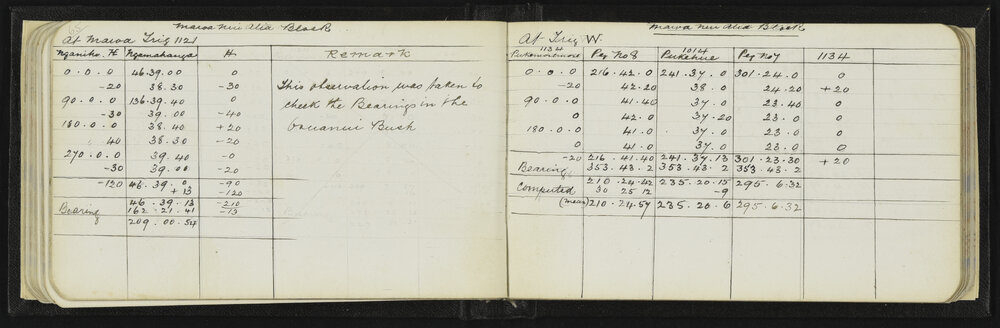 At Mawa Trig 1121
Nganiho. H Ngamahanga H. Remark
0.0.0 46.39.00 0
-20 38.30 -30 This observation was taken to
90.0.0 136.39.40 0 check the Bearings in the
-30 39.00 -40 Bush
180.0.0 38.40 +20
40 38.30 -20
270.0.0 39.40 -0
-30 39.00 -20
-120 46.39.0 -90
+13 -120
46.39.13 -210
Bearing 162.21.41 -13
209.00.54
Block
At Trig W.
1134 1014
Peg No 8 Pukehue Peg No 7 1134
0.0.0 216.42.0 241.37.0 301.24.0 0
-20 42.20 38.0 24.20 +20
90.0.0 41.40 37.0 23.40 0
0 42.0 37.20 23.0 0
180.0.0 41.0 37.0 23.0 0
0 41.0 37.0 23.0 0
-20 216.41.40 241.37.13 301.23.30 +20
Bearing 353.43.2 353.43.2 353.43.2
210.24.42 235.20.15 295.6.32
Computed 30 25 12 -9
(mean) 210.24.57 235.20.6 295.6.32